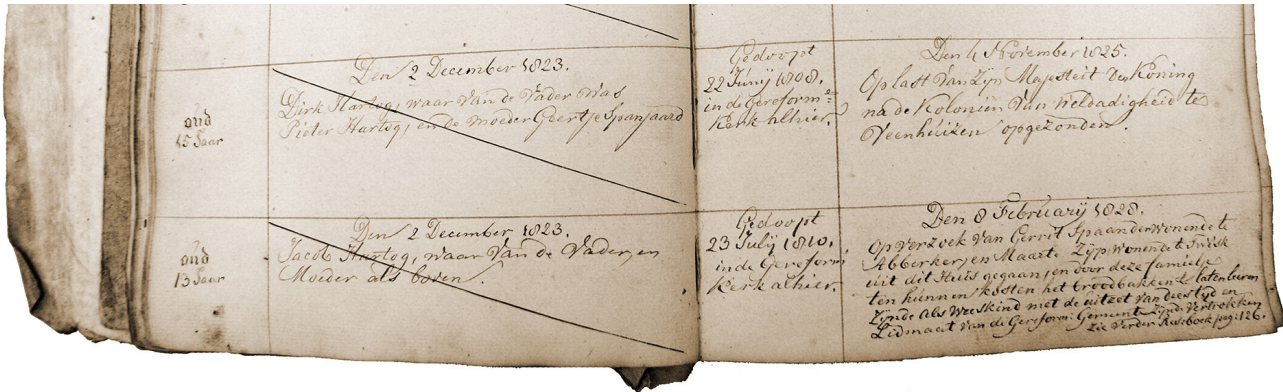 oud
15 Jaar
Den 2 December 1823.
Dirk Hartog, waar van de Vader was
Pieter Hartog, en de moeder Geertje Spanjaard
Gedoopt
22 Junij 1808.
in de Gereform:
Kerk alhier.
Den 4 November 1825.
Op last van Zijn Majesteit den Koning
na de Koloniën van Weldadigheid te
Veenhuizen opgezonden.
oud
13 Jaar
Den 2 December 1823.
Jacob Hartog, waar van de Vader en
Moeder als boven.
Gedoopt
23 Julij 1810.
in de Gereform:
Kerk alhier.
Den 8 February 1828.
Op verzoek van Gerrit Spaander wonende te
Abbekerk, en Maarte Zijp, wonende te Twisk
uit dit Huis gegaan, en door deze familje
ten hunnen kosten het broodbakken te laten leeren
Zijnde als Weeskind met de uitzet van dies tijd en
Lidmaat van de Gereform: Gemeente Zijnde Vertrokken
Zie Verder Resboek pag: 126.